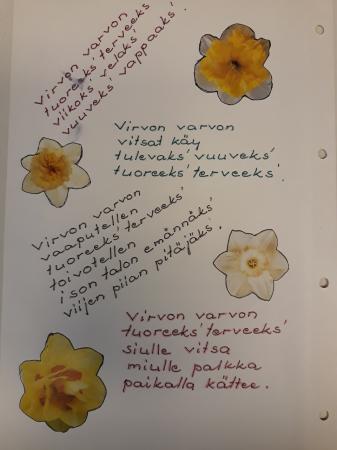 Virvon varvon
tuoreeks' terveeks'
viikoks' velaks'
vuuveks' vappaaks'.
Virvon varvon
vitsat käy
tulevaks' vuuveks'
tuoreeks' terveeks'.
Virvon varvon
vaaputellen
tuoreeks' terveeks'
toivotellen
ison talon emännäks'
viijen pilan pitäjäks'.
Virvon varvon
tuoreeks' terveeks'
siulle vitsa
miulle palkka
paikalla kättee.